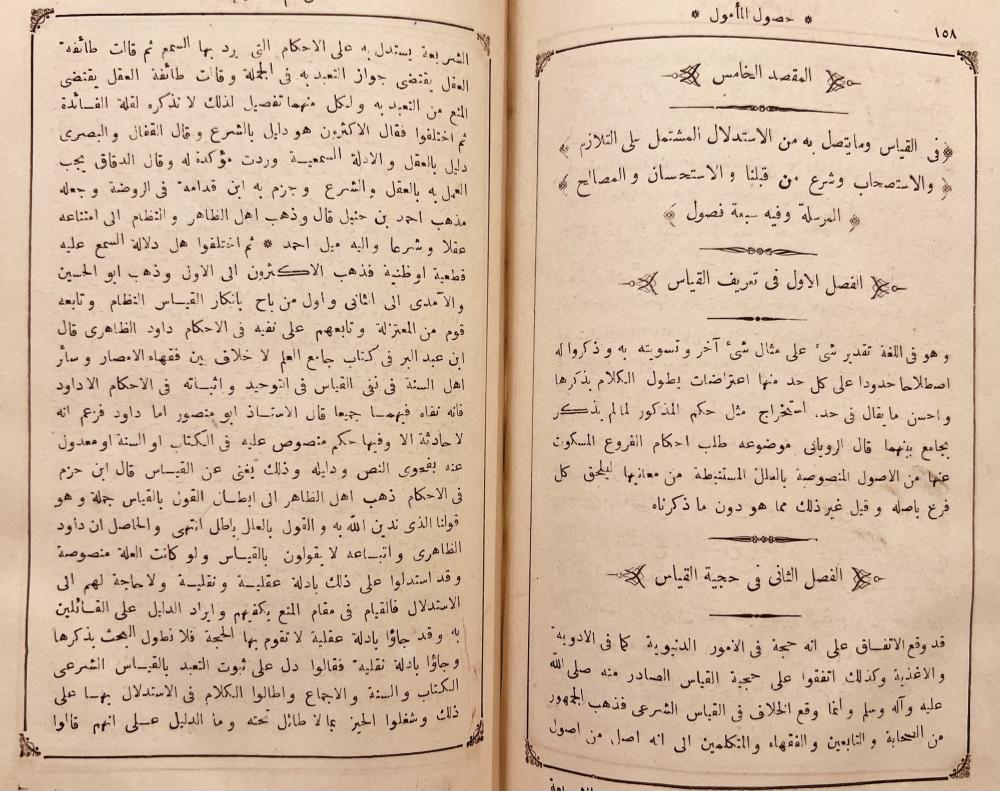 * حصول المأمول *
١٥٨
المقصد الخامس
﴿ فى القياس وما يتصل به من الاستدلال المشتمل على التلازم ﴾
﴿ والاستصحاب وشرع من قبلنا والاستحسان والمصالح ﴾
﴿ المرسلة وفيه سبعة فصول ﴾
الفصل الاول فى تعريف القياس
وهو فى اللغة تقدير شئ على مثال شئ آخر وتسويته به وذكروا له
اصطلاحا حدودا على كل حد منها اعتراضات يطول الكلام بذكرها
واحسن ما يقال فى حده استخراج مثل حكم المذكور لما لم يذكر
بجامع بينهما قال الرويانى موضوعه طلب احكام الفروع المسكوت
عنها من الاصول المنصوصة بالعلل المستنبطة من معانيها ليلحق كل
فرع باصله وقيل غير ذلك مما هو دون ما ذكرناه
الفصل الثانى فى حجية القياس
قد وقع الاتفاق على انه حجة فى الامور الدنيوية كما فى الادوية
والاغذية وكذلك اتفقوا على حجية القياس الصادر منه صلى الله
عليه وآله وسلم وانما وقع الخلاف فى القياس الشرعى فذهب الجمهور
من الصحابة والتابعين والفقهاء والمتكلمين الى انه اصل من اصول
الشريعة يستدل به على الاحكام التى يرد بها السمع ثم قالت طائفة
العقل يقتضى جواز التعبد به فى الجملة وقالت طائفة العقل يقتضى
المنع من التعبد به ولكل منهما تفصيل لذلك لا نذكره لقلة الفائدة
ثم اختلفوا فقال الاكثرون هو دليل بالشرع وقال القفال والبصرى
دليل بالعقل والادلة السمعية وردت مؤكدة له وقال الدقاق يجب
العمل به بالعقل والشرع وجزم به ابن قدامة فى الروضة وجعله
مذهب احمد بن حنبل قال وذهب اهل الظاهر والنظام الى امتناعه
عقلا وشرعا واليه ميل احمد * ثم اختلفوا هل دلالة السمع عليه
قطعية او ظنية فذهب الاكثرون الى الاول وذهب ابو الحسين
والآمدى الى الثانى واول من باح بانكار القياس النظام وتابعه
قوم من المعتزلة وتابعهم على نفيه فى الاحكام داود الظاهرى قال
ابن عبد البر فى كتاب جامع العلم لا خلاف بين فقهاء الامصار وسائر
اهل السنة فى نفى القياس فى التوحيد واثباته فى الاحكام الا داود
فانه نفاه فيهما جميعا قال الاستاذ ابو منصور اما داود فزعم انه
لا حادثة الا وفيها حكم منصوص عليه فى الكتاب او السنة او معدول
عنه بفحوى النص ودليله وذلك يغنى عن القياس قال ابن حزم
فى الاحكام ذهب اهل الظاهر الى ابطال القول بالقياس جملة وهو
قولنا الذى ندين الله به والقول بالعلل باطل انتهى والحاصل ان داود
الظاهرى واتباعه لا يقولون بالقياس ولو كانت العلة منصوصة
وقد استدلوا على ذلك بادلة عقلية ونقلية ولا حاجة لهم الى
الاستدلال فالقيام فى مقام المنع يكفيهم وايراد الدليل على القائلين
به وقد جاؤا بادلة عقلية لا تقوم بها الحجة فلا نطول البحث بذكرها
وجاؤا بادلة نقلية فقالوا دل على ثبوت التعبد بالقياس الشرعى
الكتاب والسنة والاجماع واطالوا الكلام فى الاستدلال بها على
ذلك وشغلوا الحيز بما لا طائل تحته وما الدليل على انهم قالوا